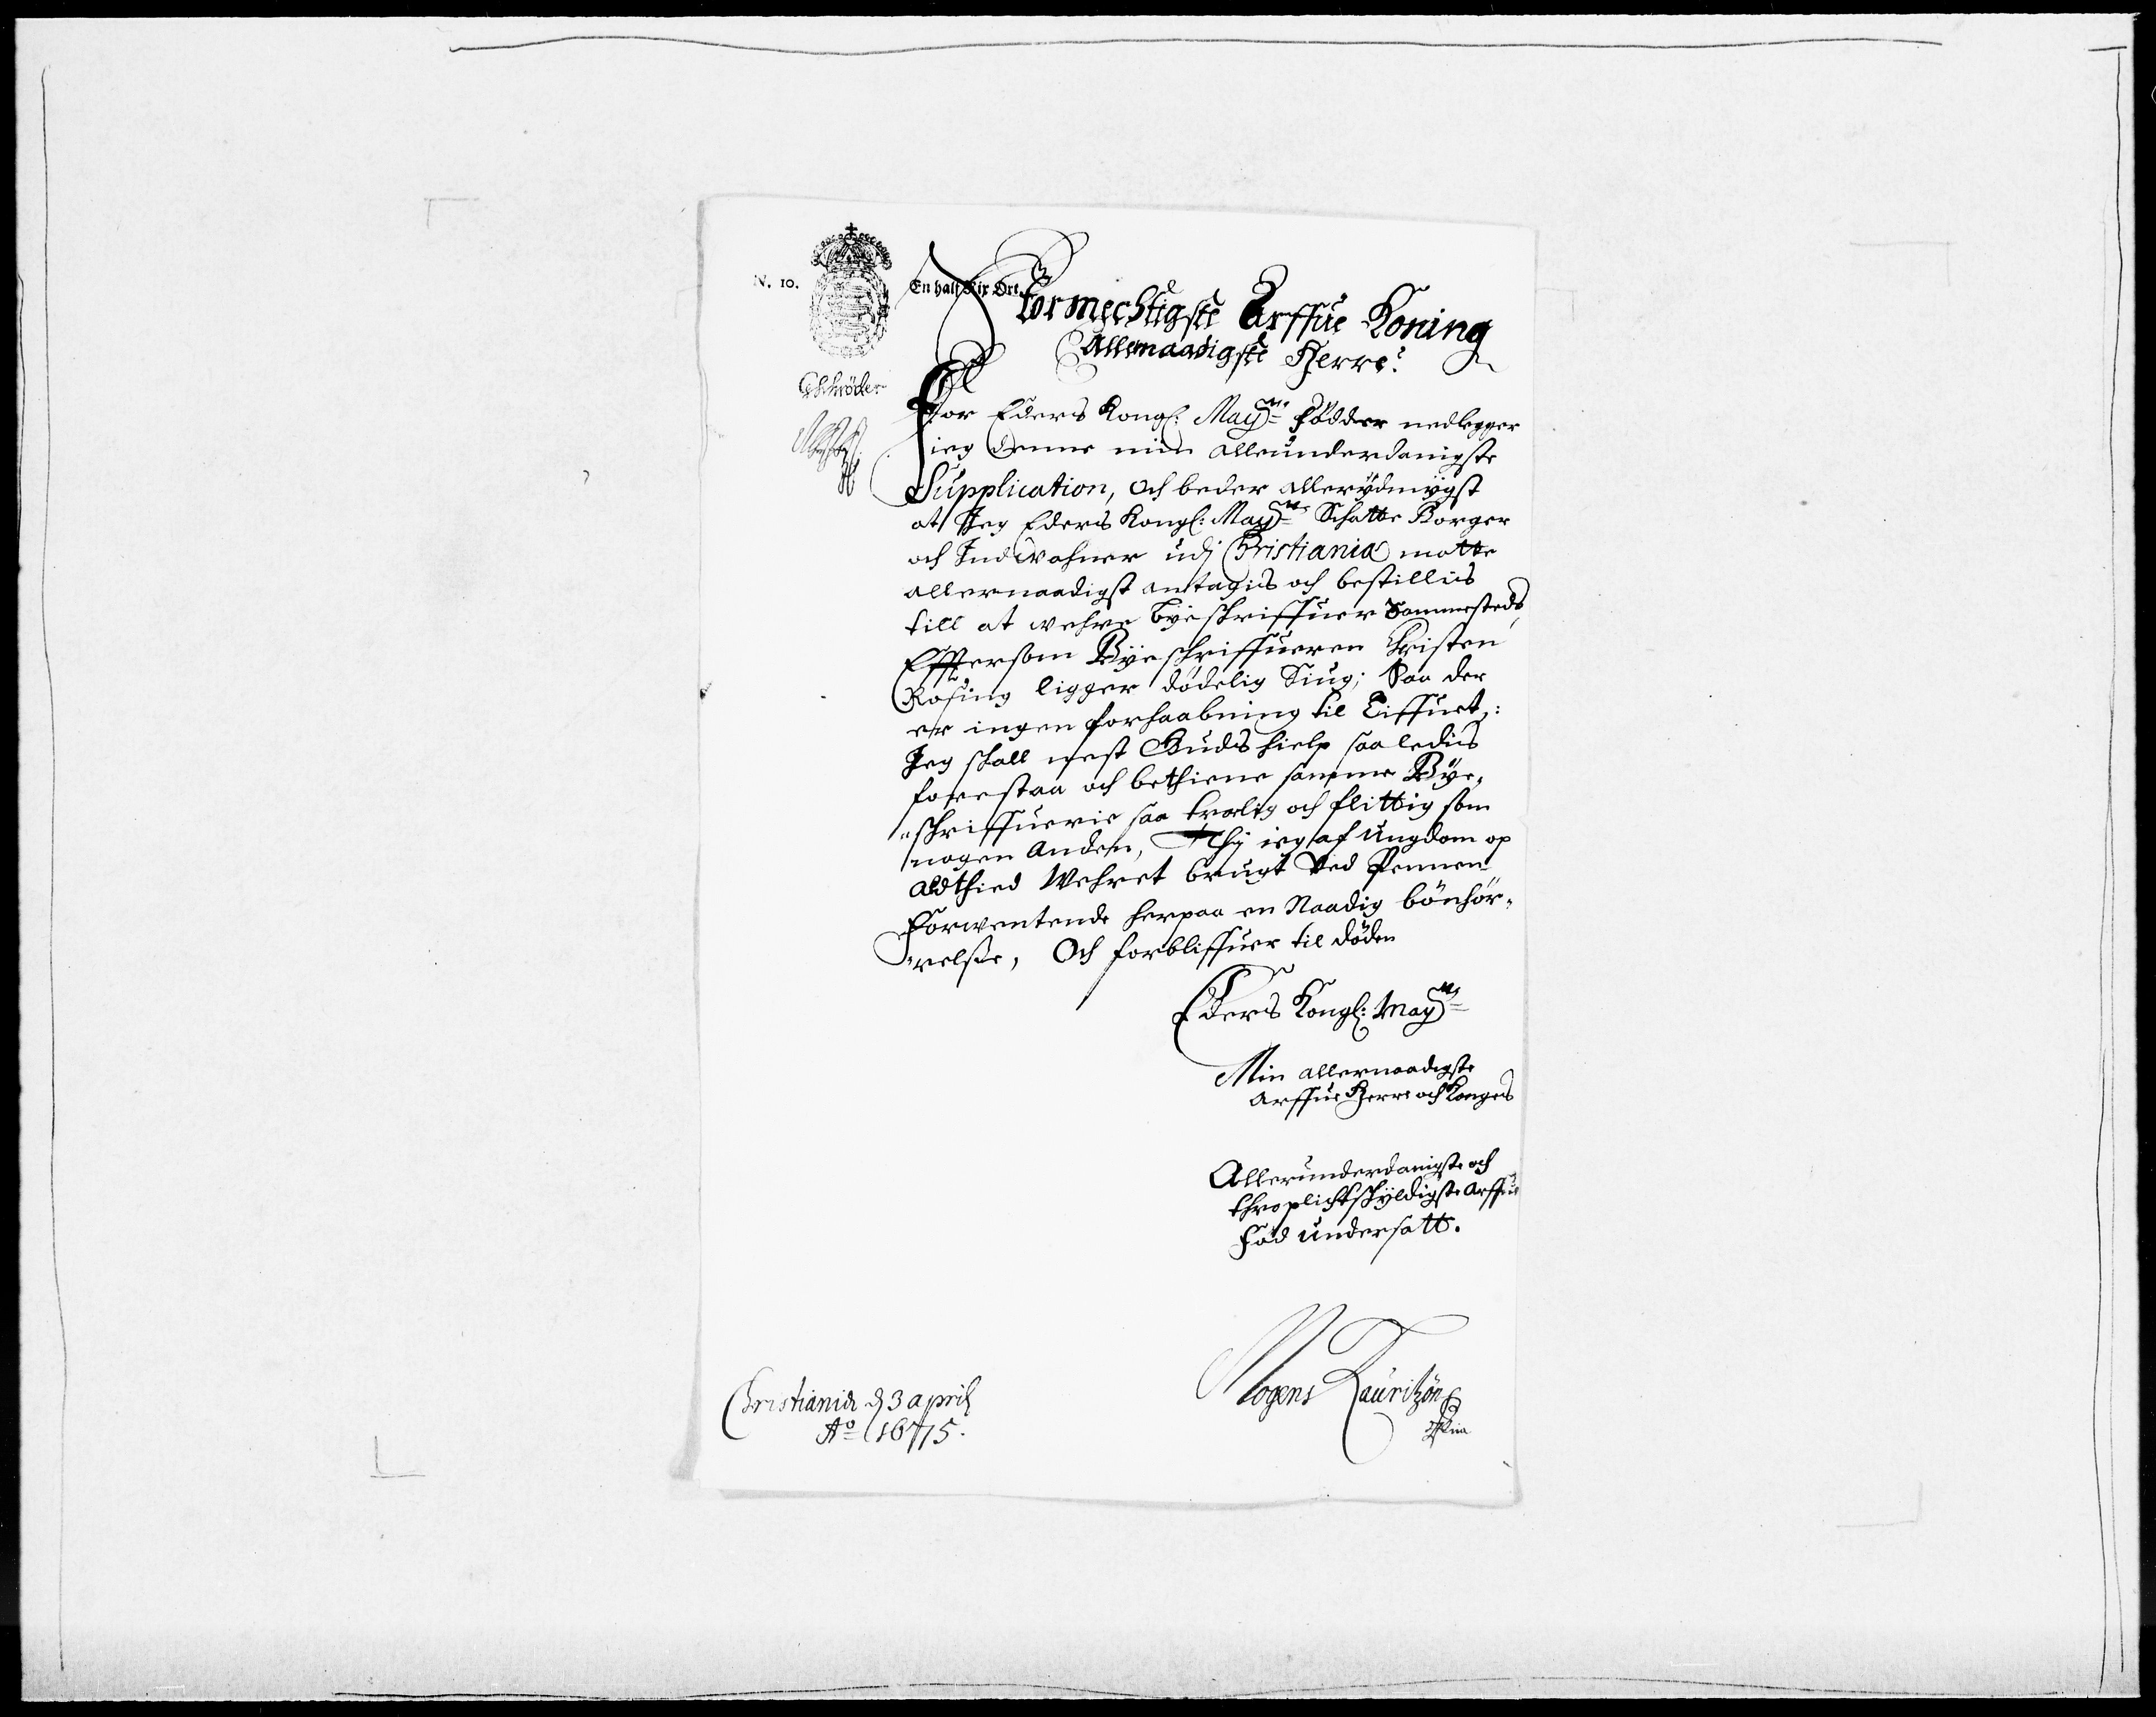 N. 10.
En halt Rix Ort.
Stormechtigste Arffue Koning
Allernaadigste Herre:
For Eders Kongl: Mayts födder nedlegger
ieg denne min allerunderdanigste
Supplication, och beder allerydmygst
at Jeg Eders Kongl: Mayts Schatte Borger
och Indwohner udj Christiania motte
allernaadigst antagis och bestillis
till at wehre Bÿeschriffuer Sammesteds,
Efftersom Bÿeschriffueren Christen
Rosing ligger dödelig Siug; Saa der
er ingen forhaabning til Liffuet:
Jeg schall nest Guds hielp saaledis
forestaa och bethiene samme Bÿe„
„schriffuerie saa troelig och flittig som
nogen Anden, Thÿ ieg af Ungdom op
Altthied Wehret brugt Ved Pennen
Forwentende herpaa en Naadig bönhör„
„relsse, Och forbliffuer til döden
Eders Kongl: Mayts
Min allernaadigste
Arffue Herre och Konges
Allerunderdanigste och
throplichtschÿldigste Arffue
föd Undersatt.
Mogens Lauritzön
Christiania d 3 april
Ao 1675.